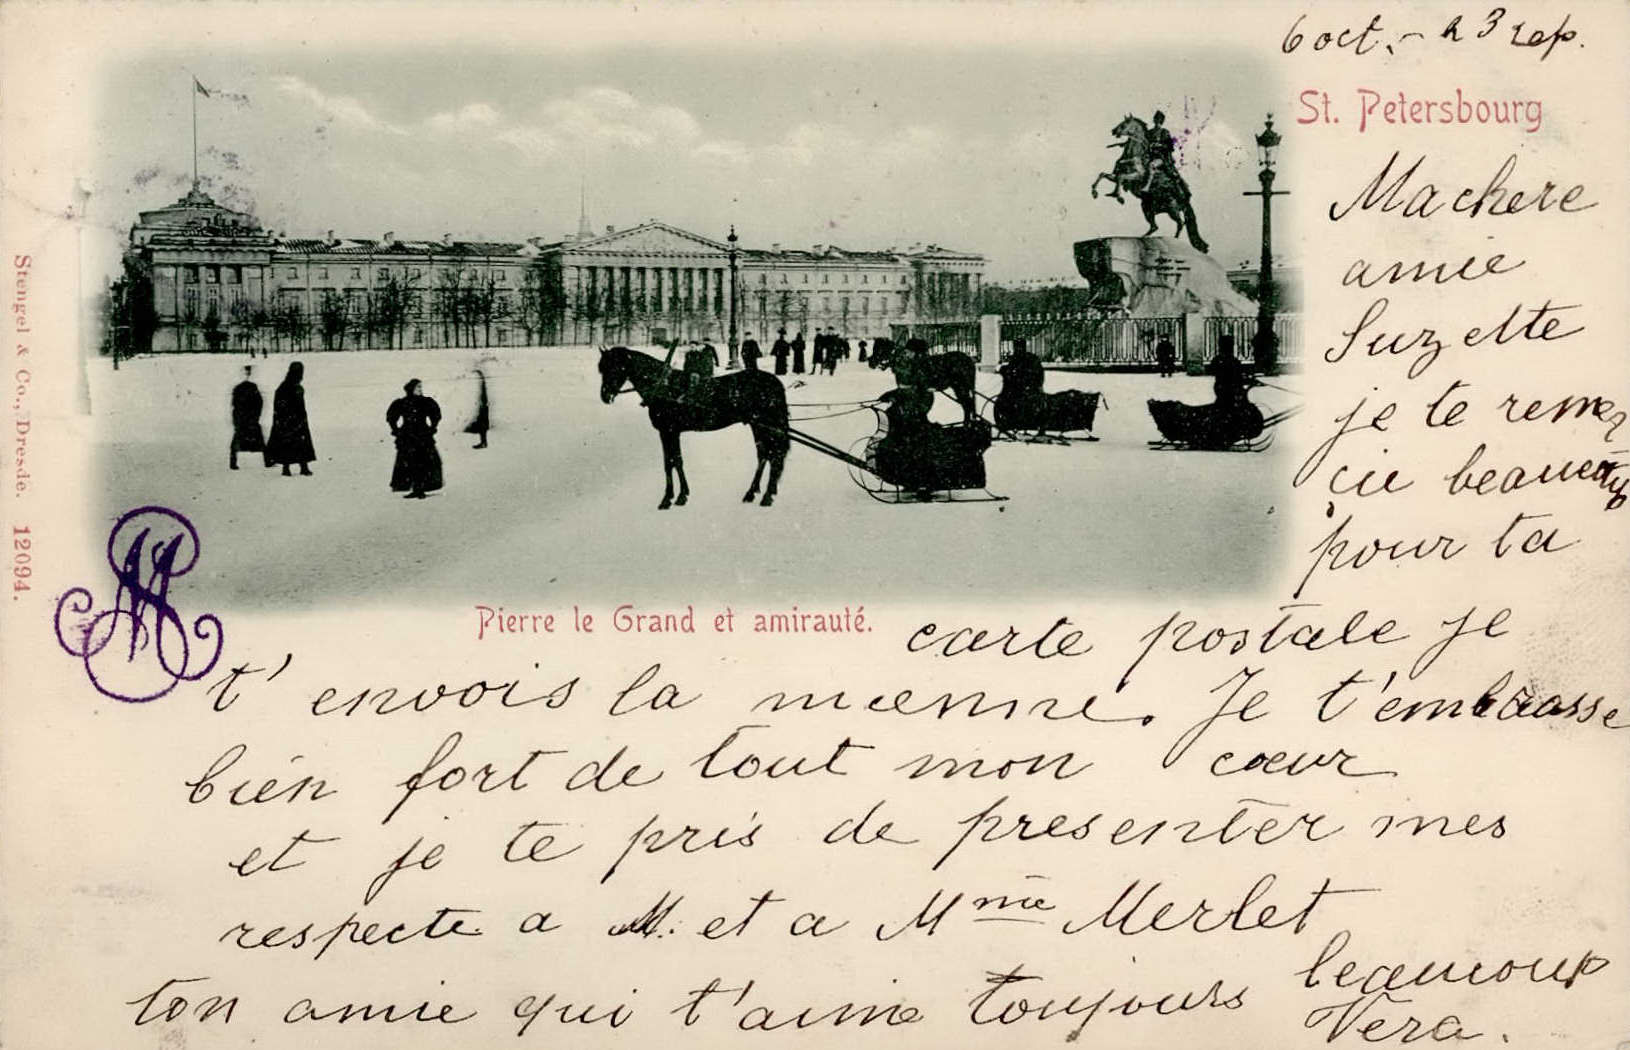 6 oct. - 23 sep.
St. Petersbourg
Ma chere
amie
Suzette
je te remer
cie beaucoup
pour ta
Pierre le Grand et amirauté.
carte postale je
t' envois la mienne. Je t'embrasse
bien fort de tout mon cœur
et je te pris de presenter mes
respecte a M. et a Mme Merlet
ton amie qui t'aime toujours beaucoup
Vera.
Stengel & Co., Dresde. 12094.